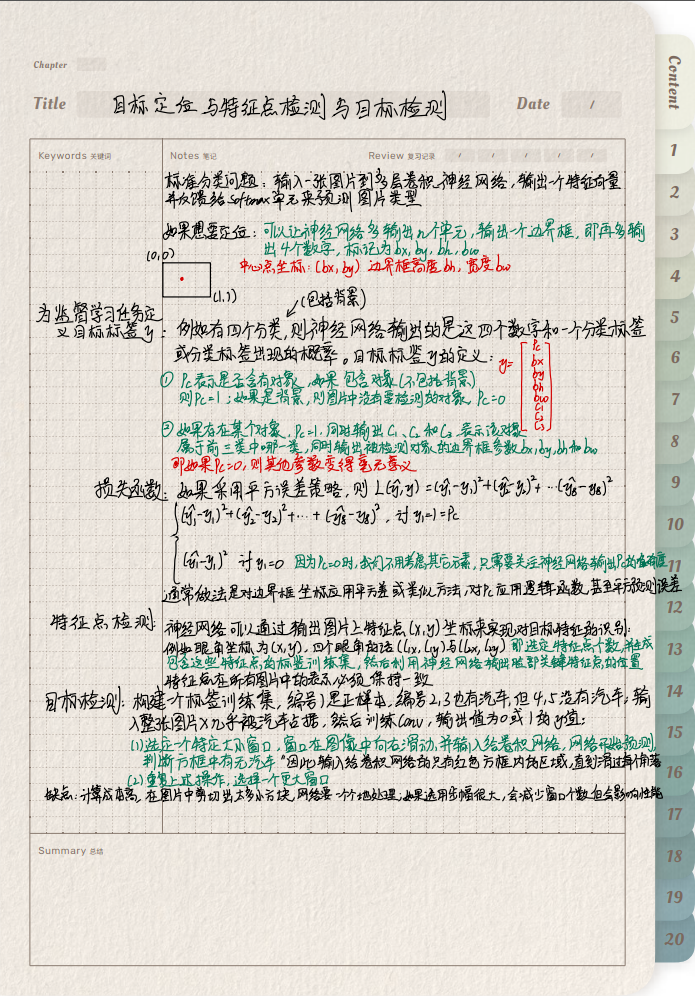 Chapter
Title 目标定位与特征点检测与目标检测 Date /
Content
Keywords 关键词 Notes 笔记 Review 复习记录 / / / / /
标准分类问题：输入一张图片到多层卷积神经网络，输出一个特征向量
并反馈给Softmax单元来预测图片类型
如果想要定位：可以让神经网络多输出几个单元，输出一个边界框，即再多输
出4个数字，标记为bx,by,bh,bw
(0,0)
中心点坐标：(bx,by) 边界框高度bh，宽度bw
(1,1)
(包括背景)
为监督学习任务定
义目标标签y：
例如有四个分类，则神经网络输出的是这四个数字和一个分类标签
或分类标签出现的概率。目标标签y的定义：
y=
Pc
bx
by
bh
bw
C1
C2
C3
① Pc表示是否含有对象，如果包含对象(不包括背景)
则Pc=1；如果是背景，则图片中没有要检测的对象，Pc=0
② 如果存在某个对象，Pc=1，同时输出C1、C2和C3表示该对象
属于前三类中哪一类，同时输出被检测对象的边界框参数bx,by,bh和bw
即如果Pc=0，则其他参数变得毫无意义
损失函数：如果采用平方误差策略，则 L(ŷ,y)=(ŷ1-y1)²+(ŷ2-y2)²+…(ŷ8-y8)²
(ŷ1-y1)²+(ŷ2-y2)²+…+(ŷ8-y8)²，计y1=1=Pc
(ŷ1-y1)² 计y1=0 因为Pc=0时，我们不用考虑其它元素，只需要关注神经网络输出Pc的准确度
通常做法是对边界框坐标应用平方差或类似方法，对Pc应用逻辑函数，甚至平方预测误差
特征点检测：
神经网络可以通过输出图片上特征点(x,y)坐标来实现对目标特征的识别：
例如眼角坐标为(x,y)，四个眼角的话(l1x,l1y)与(l4x,l4y) 即选定特征点个数，并生成
包含这些特征点的标签训练集，然后利用神经网络输出脸部关键特征点的位置
特征点在所有图片中的表示必须保持一致
目标检测：构建一个标签训练集，编号1是正样本，编号2,3也有汽车，但4,5没有汽车；输
入整张图片X几乎被汽车占据，然后训练Conv，输出值为0或1的y值：
(1)选定一个特定大小窗口，窗口在图像中向右滑动，并输入给卷积网络，网络开始预测，
判断方框中有无汽车"因此输入给卷积网络的只有红色方框内的区域，直到滑过每个角落
(2)重复上式操作，选择一个更大窗口
缺点：计算成本高，在图片中剪切出太多小方块，网络要一个个地处理；如果选用步幅很大，会减少窗口个数但会影响性能
Summary 总结
1
2
3
4
5
6
7
8
9
10
11
12
13
14
15
16
17
18
19
20